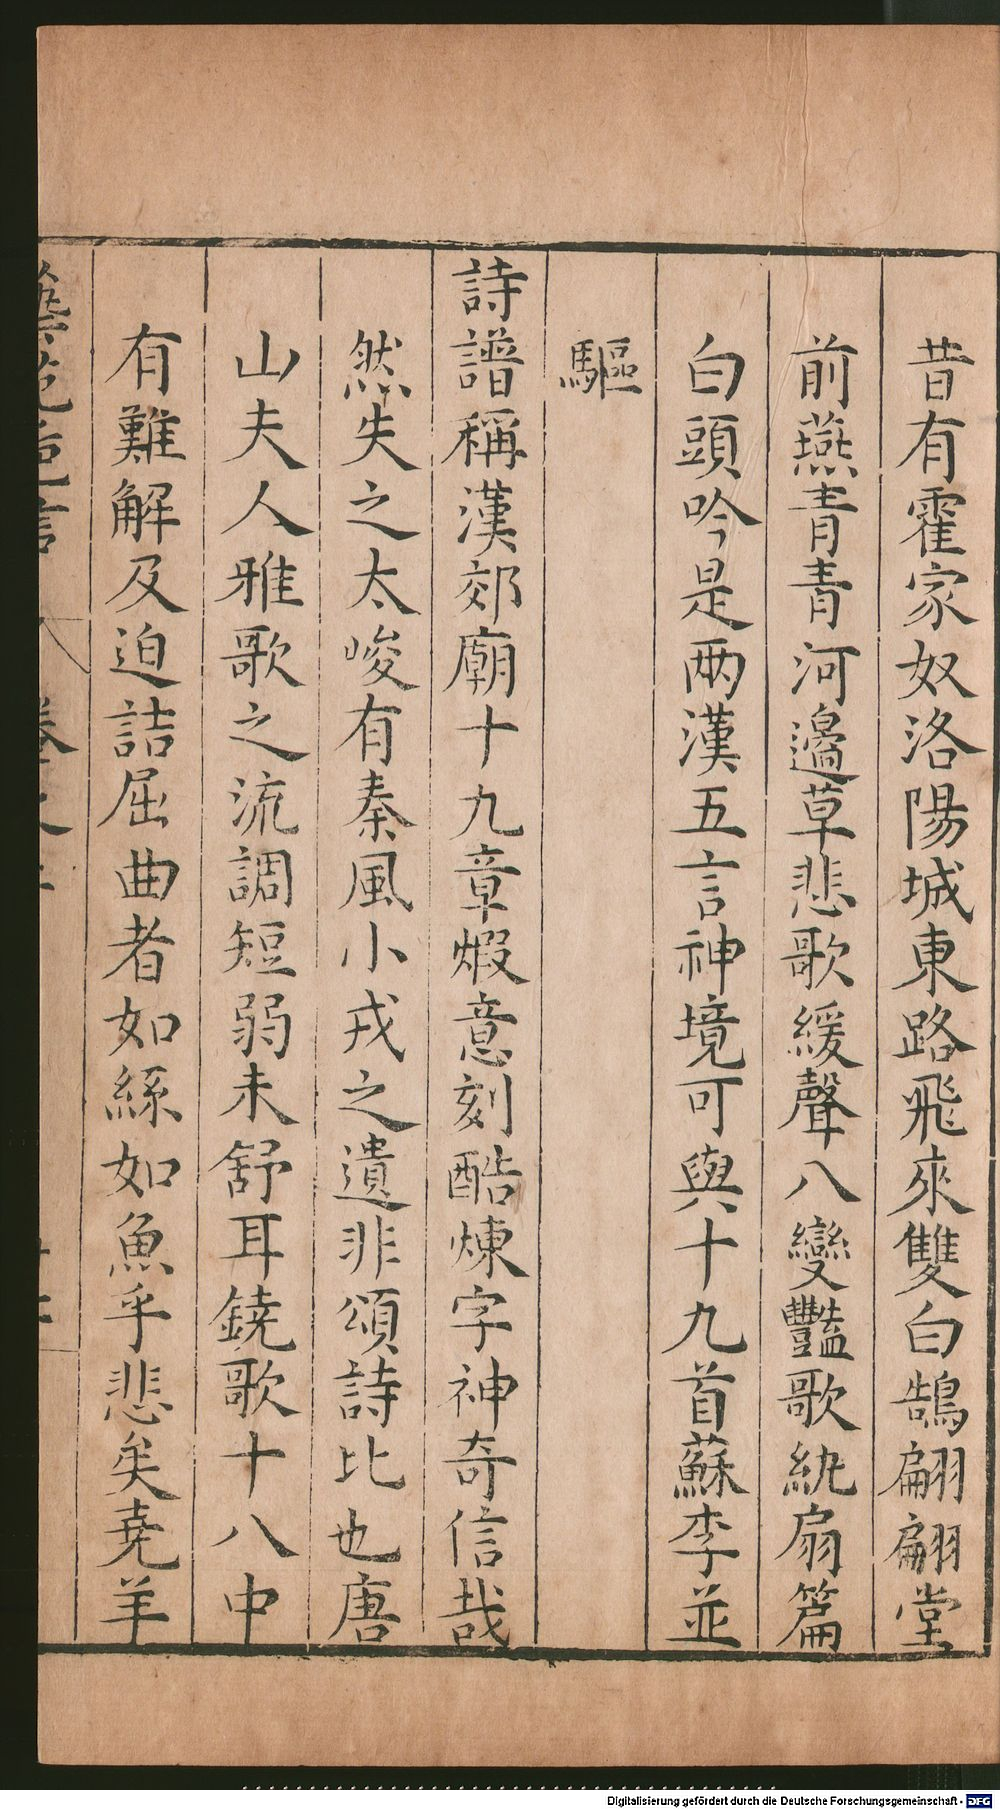 昔有霍家奴洛陽城東路飛來雙白鵠翩翩堂
前燕青青河邊草悲歌緩聲八變豔歌紈扇篇
白頭吟是兩漢五言神境可與十九首蘇李並
驅
詩譜稱漢郊廟十九章煆意刻酷煉字神奇信哉
然失之太峻有秦風小戎之遺非頌詩比也唐
山夫人雅歌之流調短弱未舒耳鐃歌十八中
有難解及迫詰屈曲者如絲如魚乎悲矣堯羊
藝苑巵言 卷之
Digitalisierung gefördert durch die Deutsche Forschungsgemeinschaft - DFG